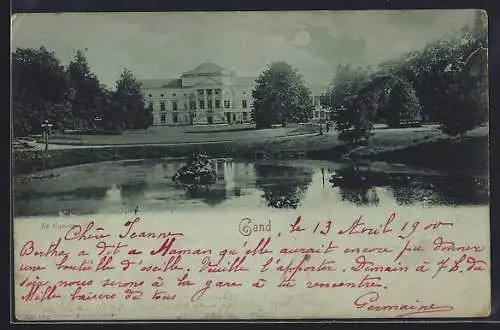 Le Casino
Gand, le 13 Avril 1900
Chère Jeanne
Berthe a dit a Maman qu'elle aurait encore pu donner
une bouteille d'oseille. Veuille l'apporter. Demain à 7 h. du
soir nous serons à la gare à ta rencontre.
Mille baisers de tous
Germaine